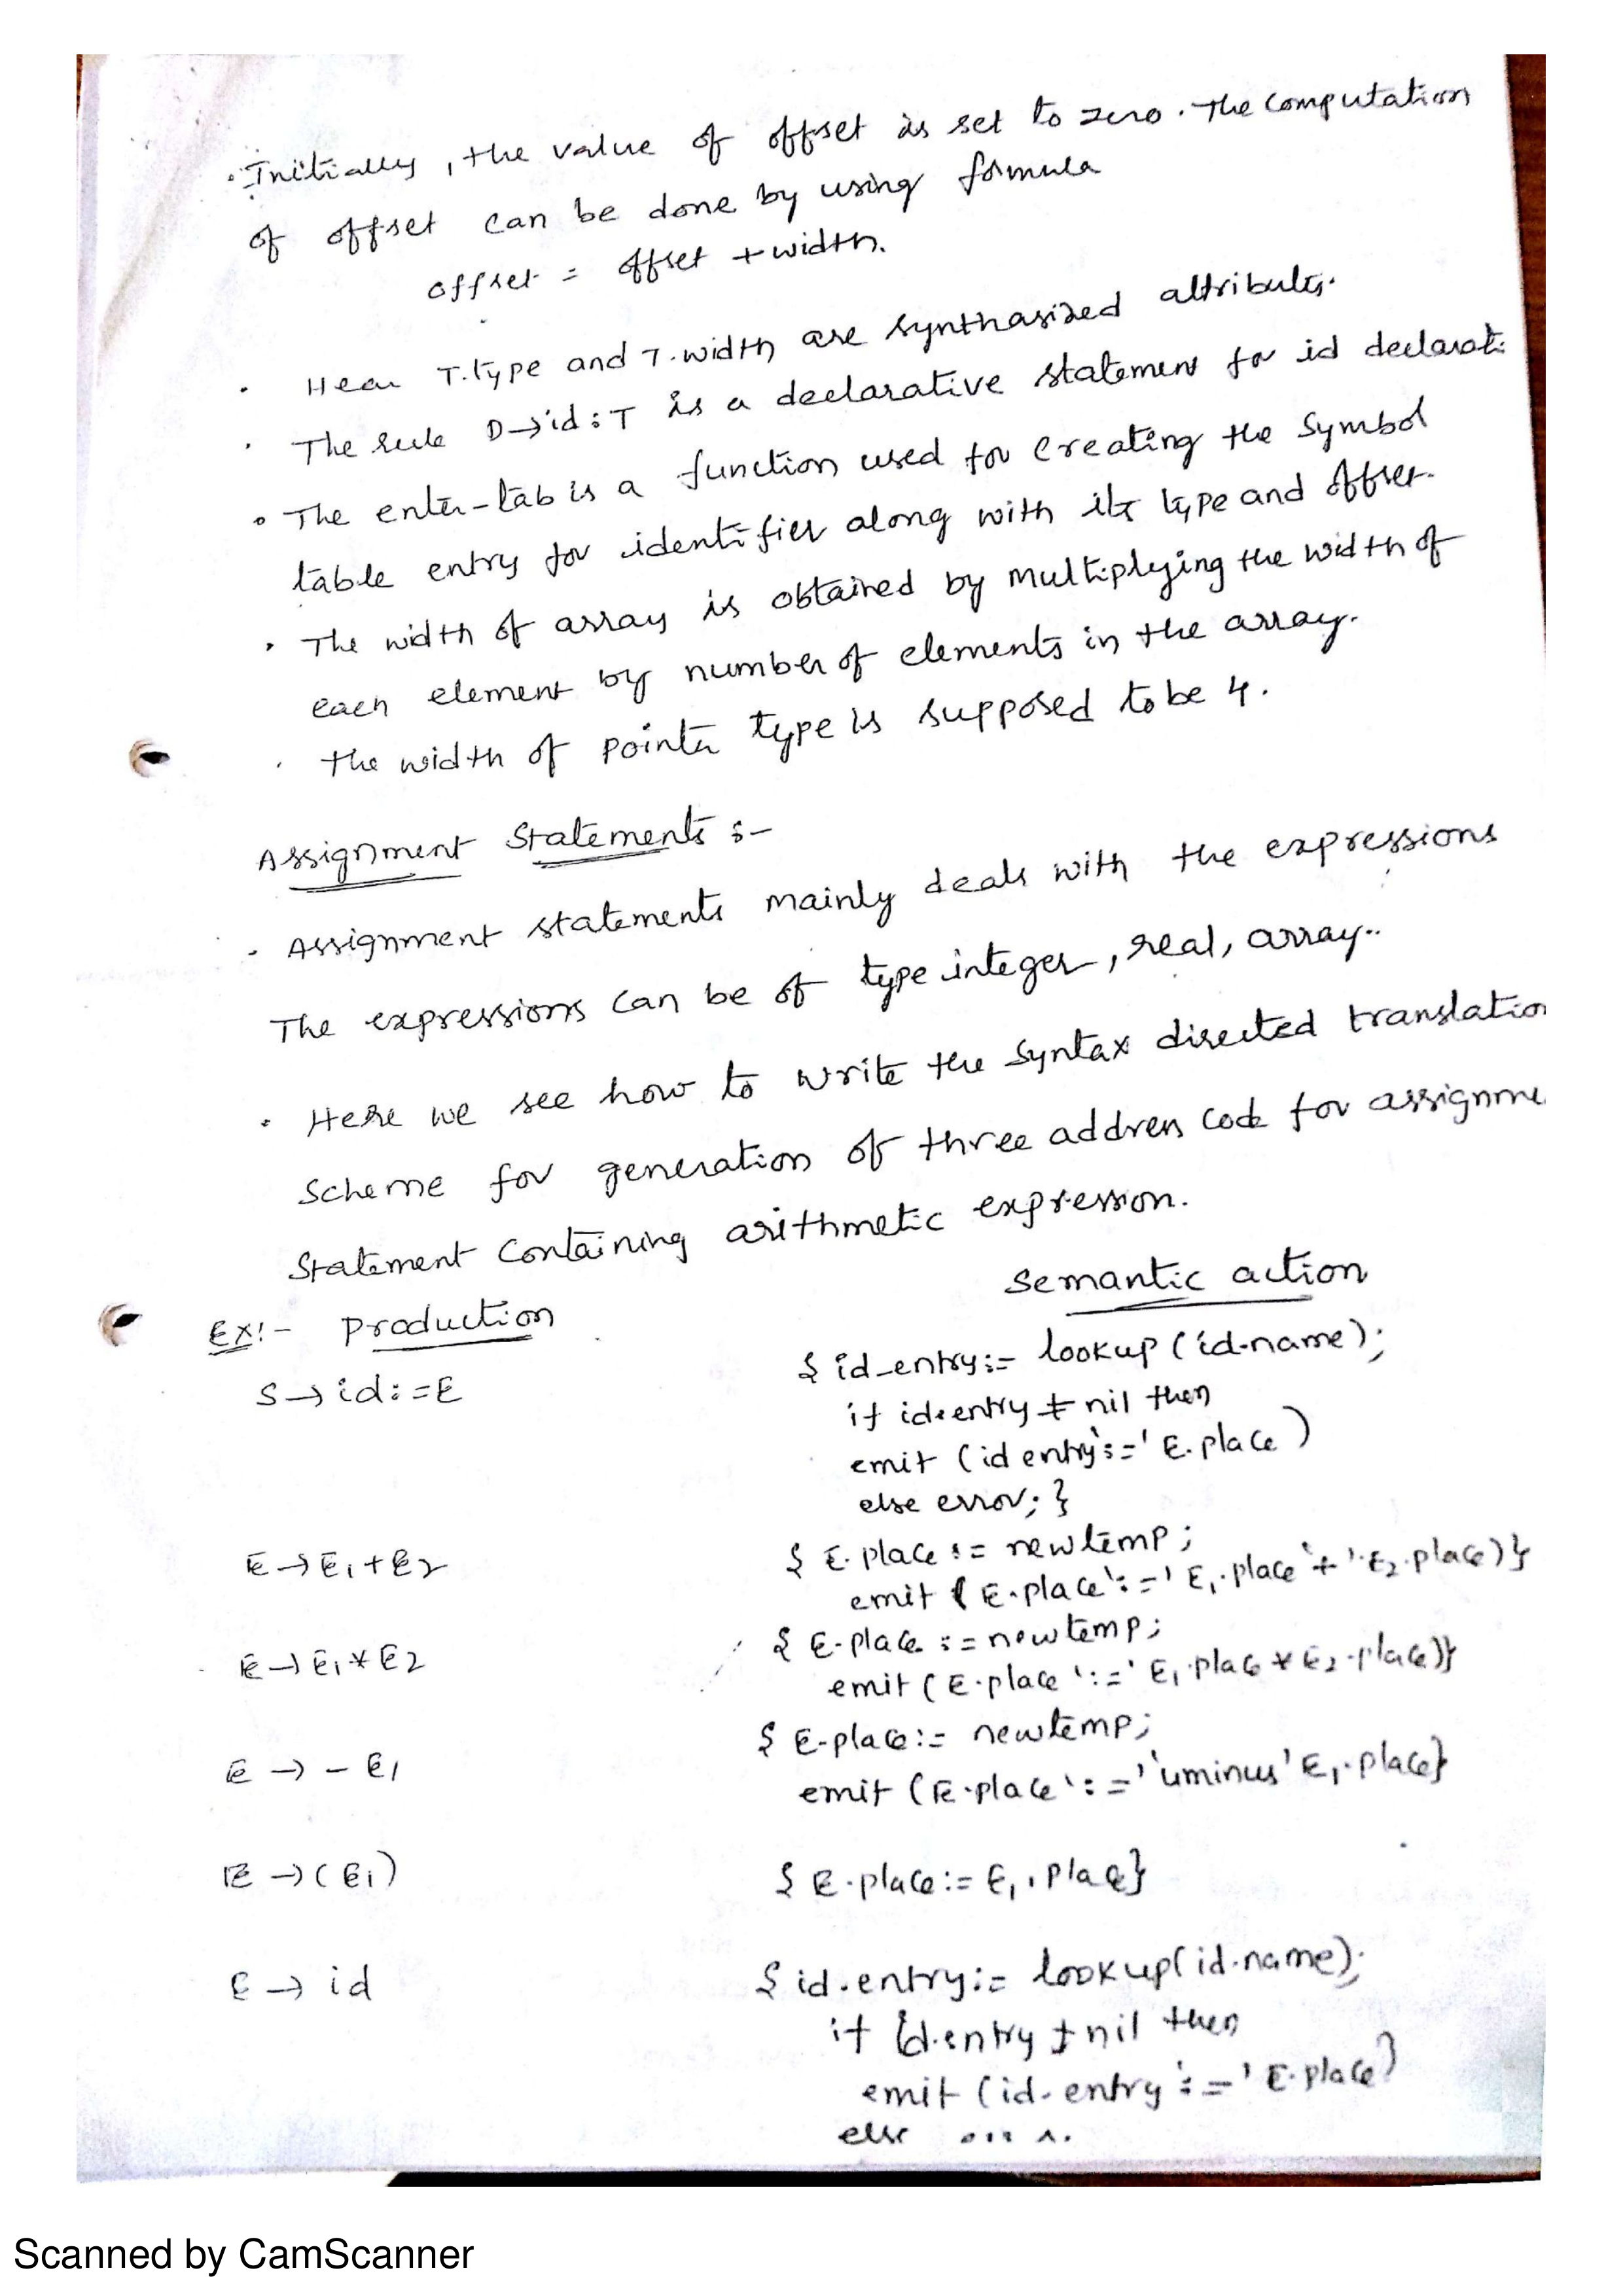 . Initially, the value of offset is set to zero. The computation
of offset can be done by using formula
offset = offset + width.
. Hear T.type and T.width are synthasized attributes.
. The rule D→id:T is a declarative statement for id declarati
. The enter-tab is a function used for creating the symbol
table entry for identifier along with its type and offset.
. The width of array is obtained by multiplying the width of
each element by number of elements in the array.
. the width of pointer type is supposed to be 4.
Assignment Statements :-
. Assignment statements mainly deals with the expressions
The expressions can be of type integer, real, array..
. Here we see how to write the syntax directed translation
scheme for generation of three address code for assignme
Statement containing arithmetic expression.
Semantic action
Ex:- Production
S→id:=E
{ id_entry:= lookup (id.name);
if id.entry ≠ nil then
emit (id entry':=' E.place)
else error; }
E→E1+E2
{ E.place := newtemp;
emit ( E.place':=' E1.place '+' E2.place)}
E→E1*E2
{ E.place := newtemp;
emit (E.place ':=' E1.place * E2.place)}
E → - E1
{ E-place:= newtemp;
emit (E.place ':=' 'uminus' E1.place}
E → (E1)
{ E.place:= E1.place}
E → id
{ id.entry:= lookup(id.name);
if id.entry ≠ nil then
emit (id.entry ':=' E.place)
else
Scanned by CamScanner